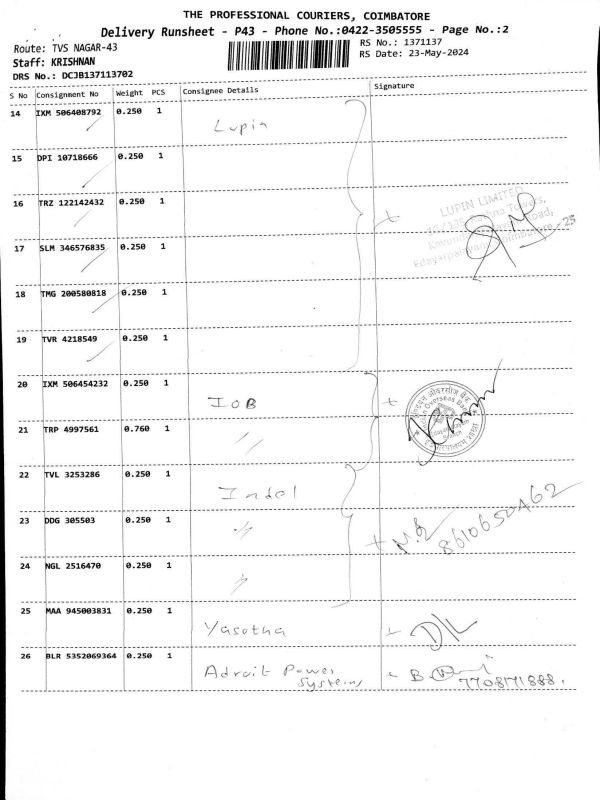 THE PROFESSIONAL COURIERS, COIMBATORE
Delivery Runsheet - P43 - Phone No.:0422-3505555 - Page No.:2
Route: TVS NAGAR-43
RS No.: 1371137
Staff: KRISHNAN
RS Date: 23-May-2024
DRS No.: DCJB137113702
S No Consignment No Weight PCS Consignee Details Signature
14 IXM 506408792 0.250 1 Lupin
15 DPI 10718666 0.250 1
16 TRZ 122142432 0.250 1
LUPIN LIMITED
17 SLM 346576835 0.250 1
18 TMG 200580818 0.250 1
19 TVR 4218549 0.250 1
20 IXM 506454232 0.250 1 IOB
21 TRP 4997561 0.760 1 "
22 TVL 3253286 0.250 1 Indol
23 DDG 305503 0.250 1 "
8610650462
24 NGL 2516470 0.250 1 "
25 MAA 945003831 0.250 1 Yasotha
26 BLR 5352069364 0.250 1 Adroit Power
Systems
7708171888.